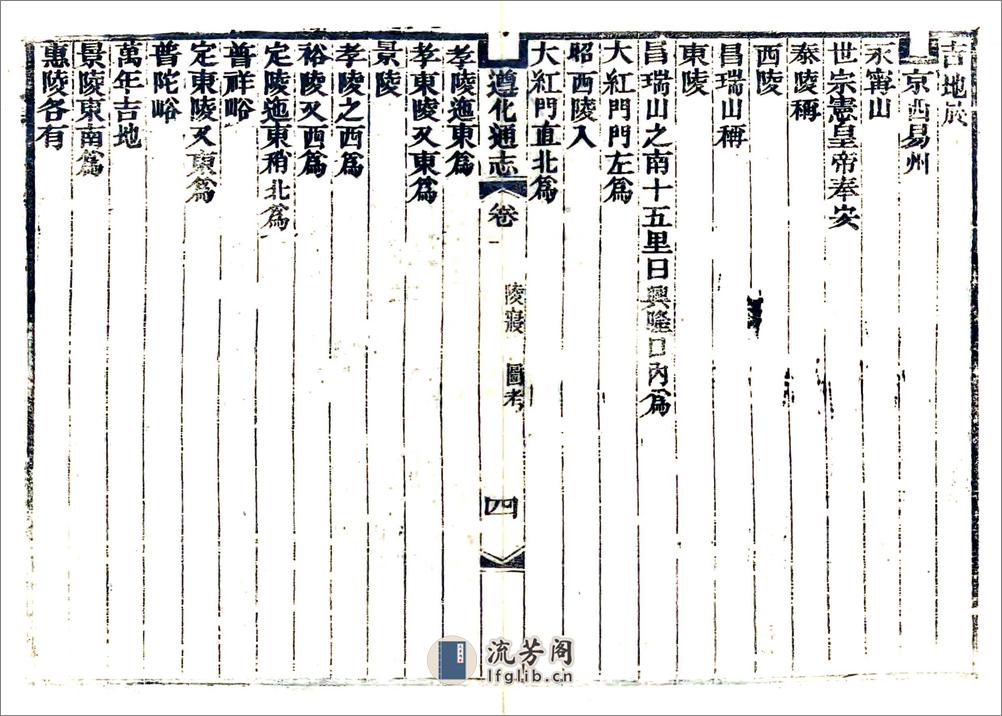 吉地於
京西易州
永寧山
世宗憲皇帝奉安
泰陵稱
西陵
昌瑞山稱
東陵
昌瑞山之南十五里曰興隆口內爲
大紅門門左爲
昭西陵入
大紅門直北爲
遵化通志 卷一 陵寢 圖考 四
孝陵迤東爲
孝東陵又東爲
景陵
孝陵之西爲
裕陵又西爲
定陵迤東稍北爲
普祥峪
定東陵又東爲
普陀峪
萬年吉地
景陵東南爲
惠陵各有
流芳阁
lfglib.cn